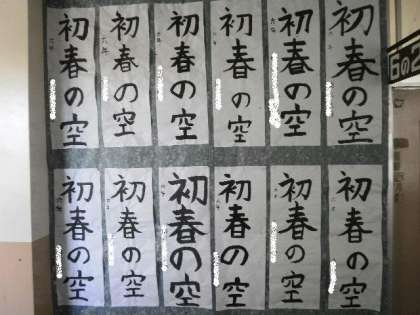 初春の空
初春の空
初春の空
初春の空
初春の空
初春の空
6の2
初春の空
初春の空
初春の空
初春の空
初春の空
初春の空